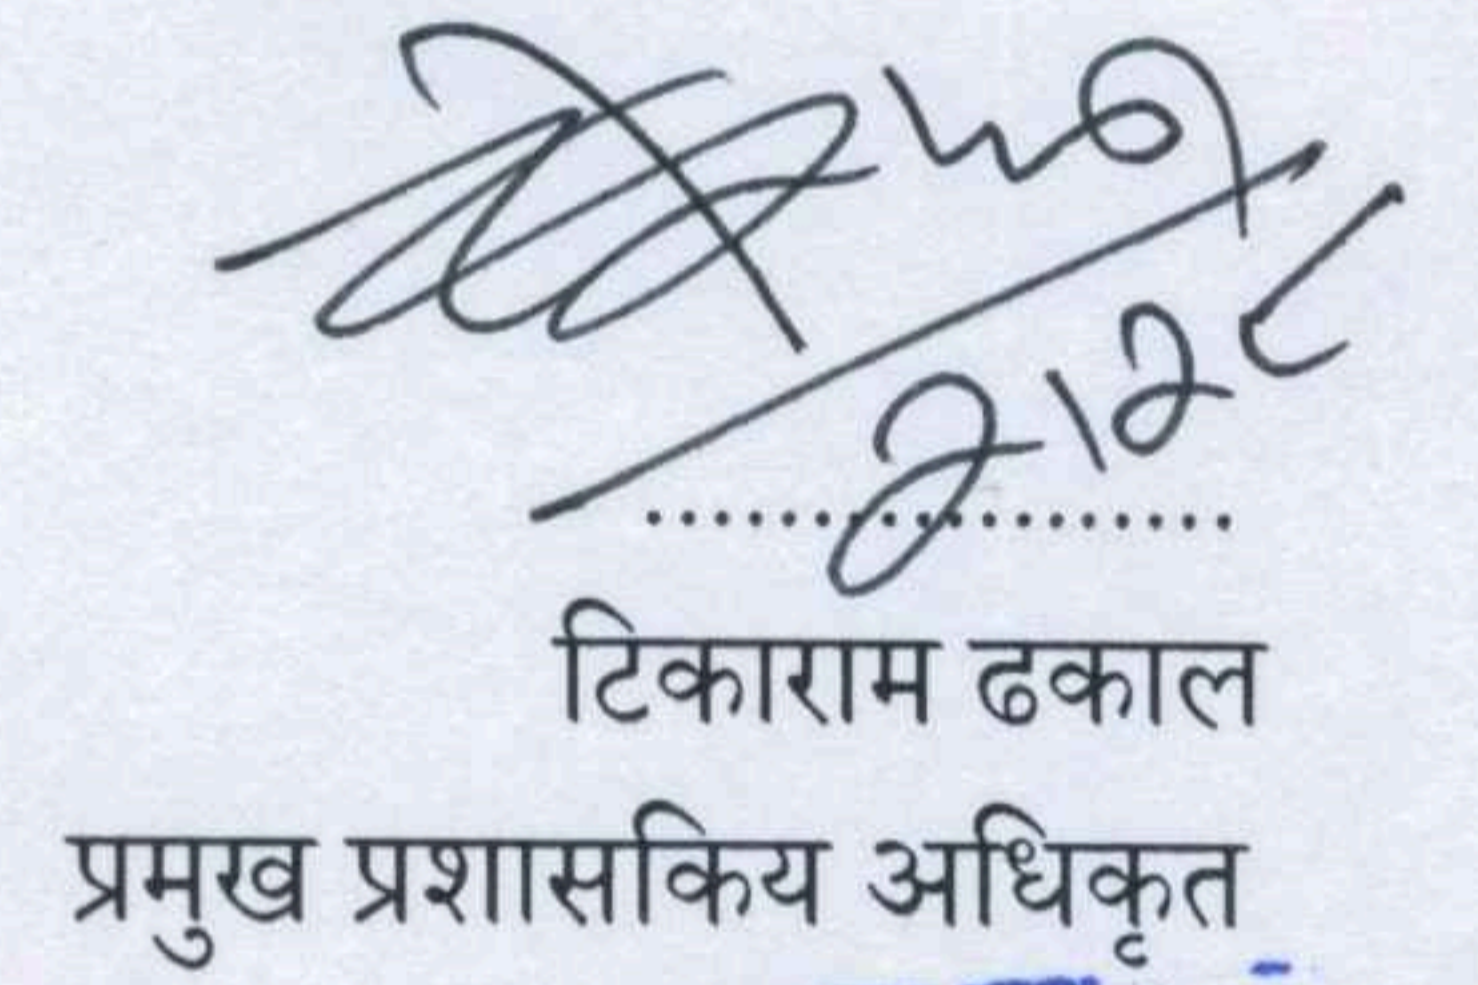 २।२८
टिकाराम ढकाल
प्रमुख प्रशासकिय अधिकृत